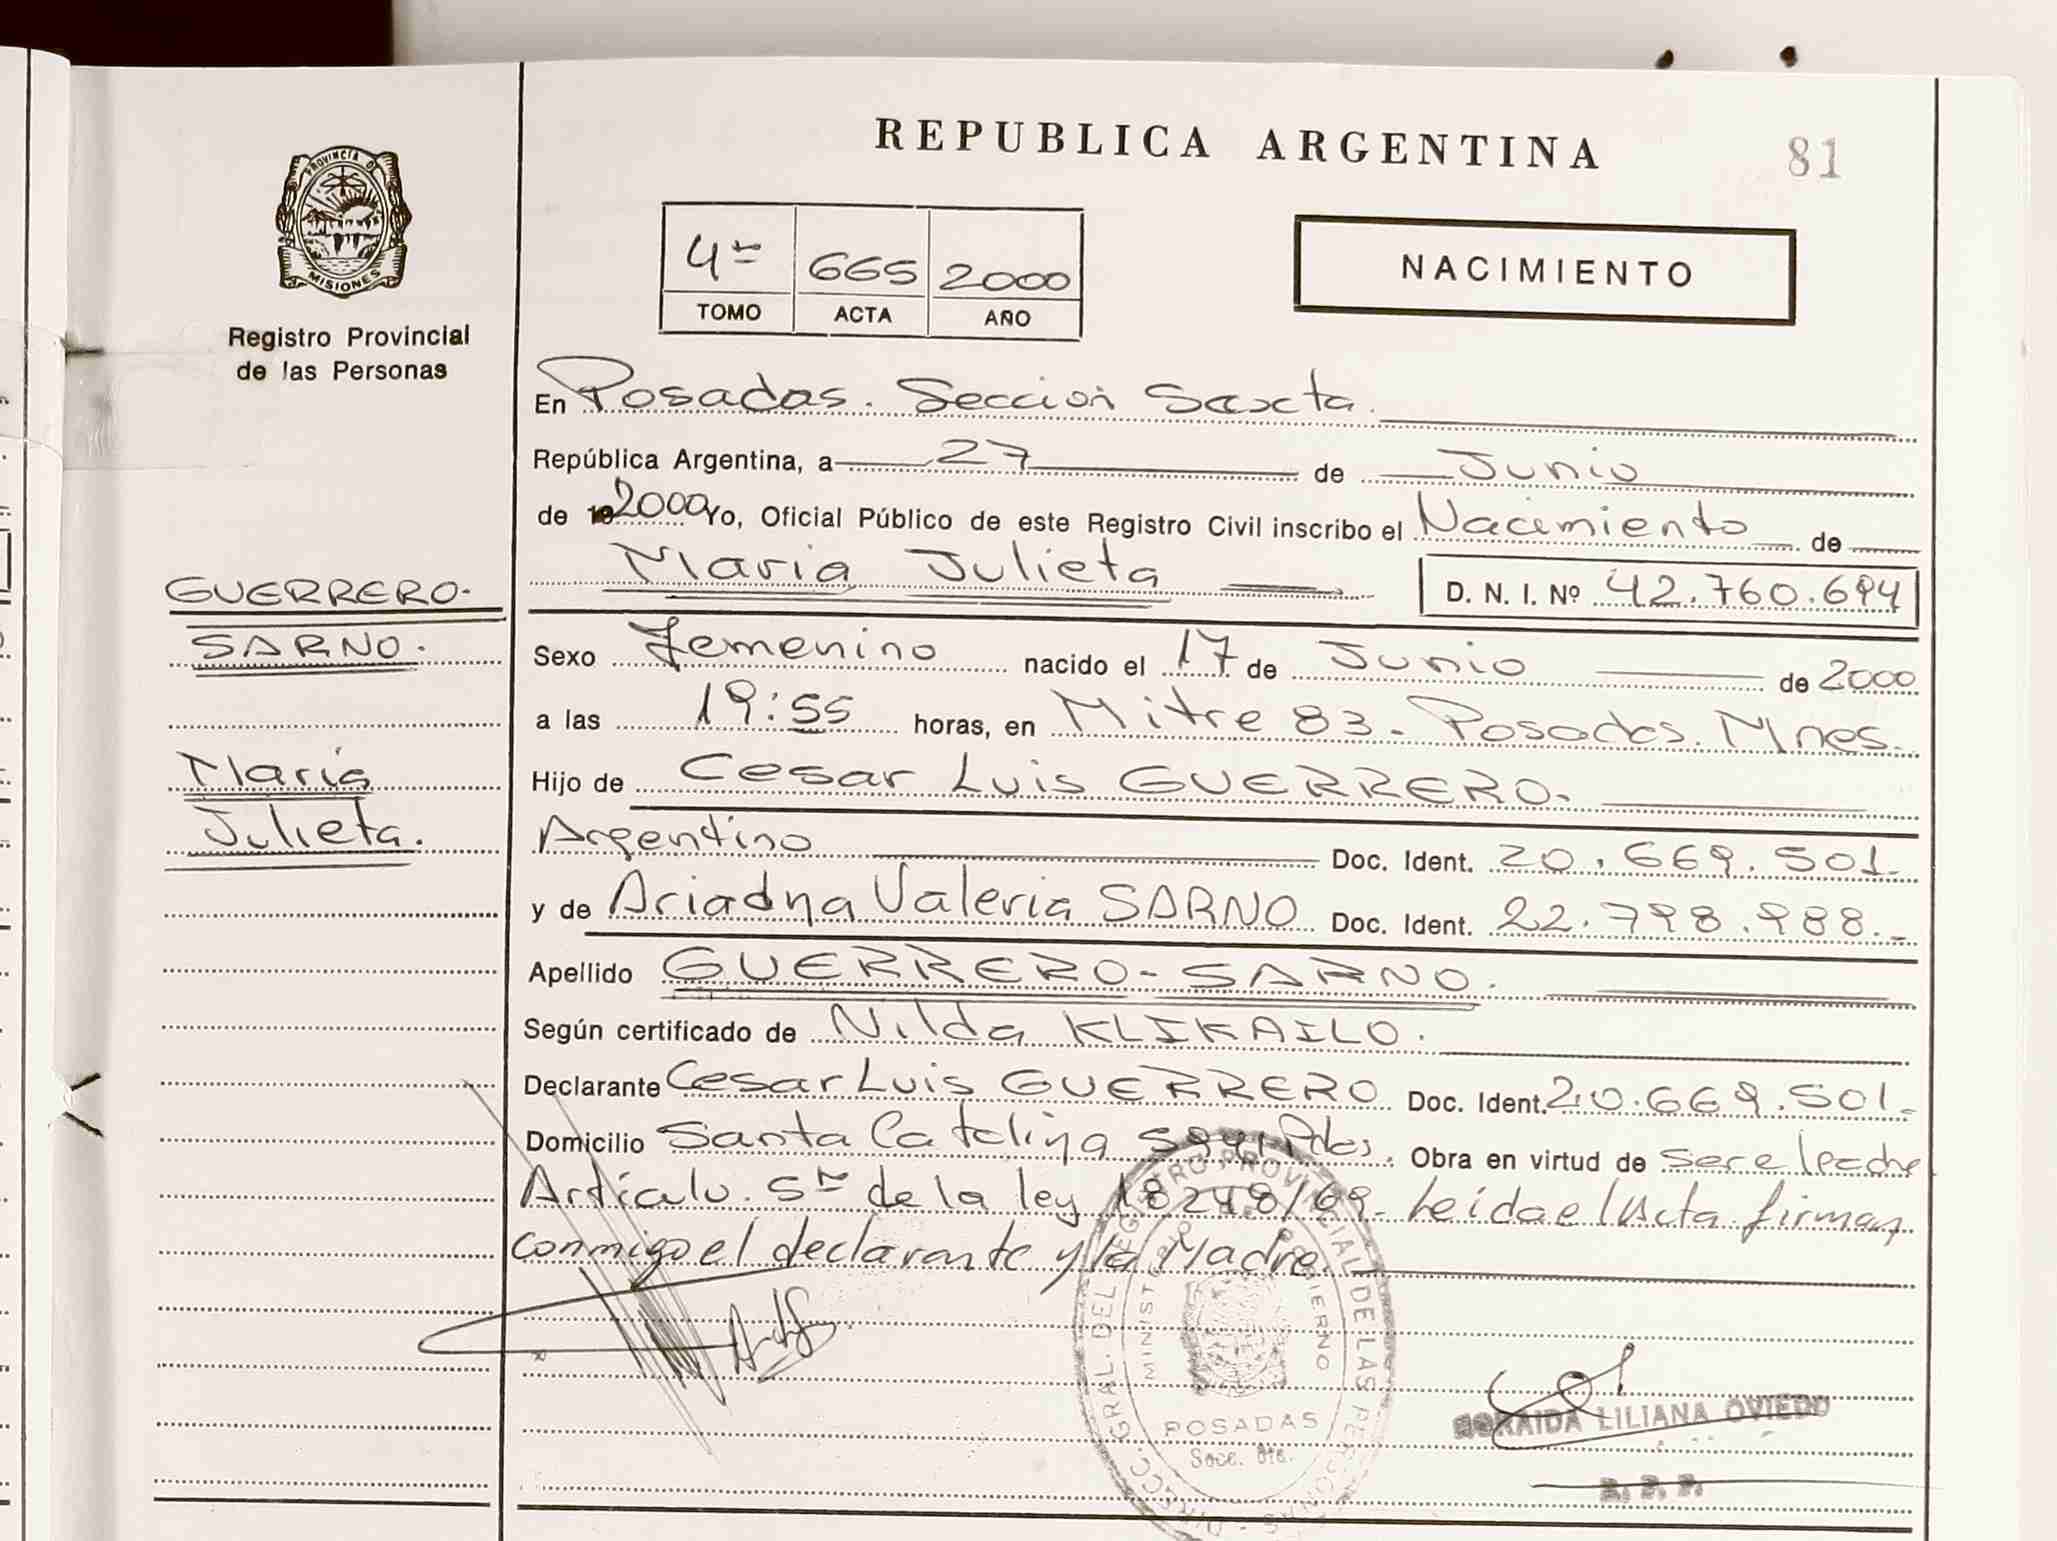 REPUBLICA ARGENTINA
81
PROVINCIA DE
MISIONES
Registro Provincial
de las Personas
4ᵗᵒ 665 2000
TOMO ACTA AÑO
NACIMIENTO
En Posadas. Sección Sexta.
República Argentina, a 27 de Junio
de 19 2000 Yo, Oficial Público de este Registro Civil inscribo el Nacimiento de
Maria Julieta D. N. I. Nº 42.760.694
GUERRERO-
SARNO.
Maria
Julieta.
Sexo Femenino nacido el 17 de Junio de 2000
a las 19:55 horas, en Mitre 83. Posadas. Mnes.
Hijo de Cesar Luis GUERRERO.
Argentino Doc. Ident. 20.669.501.
y de Ariadna Valeria SARNO Doc. Ident. 22.798.988.
Apellido GUERRERO-SARNO.
Según certificado de Nilda KLIKAILO.
Declarante Cesar Luis GUERRERO Doc. Ident. 20.669.501.
Domicilio Santa Catalina Pdas. Obra en virtud de ser el padre
Artículo 5ᵗᵒ de la ley 18248/69. Leida el Acta firman
conmigo el declarante y la Madre.
DIRECC. GRAL. DEL REGISTRO PROVINCIAL DE LAS PERSONAS
MINISTERIO DE GOBIERNO
POSADAS
LILIANA OVIEDO
R. P. P.